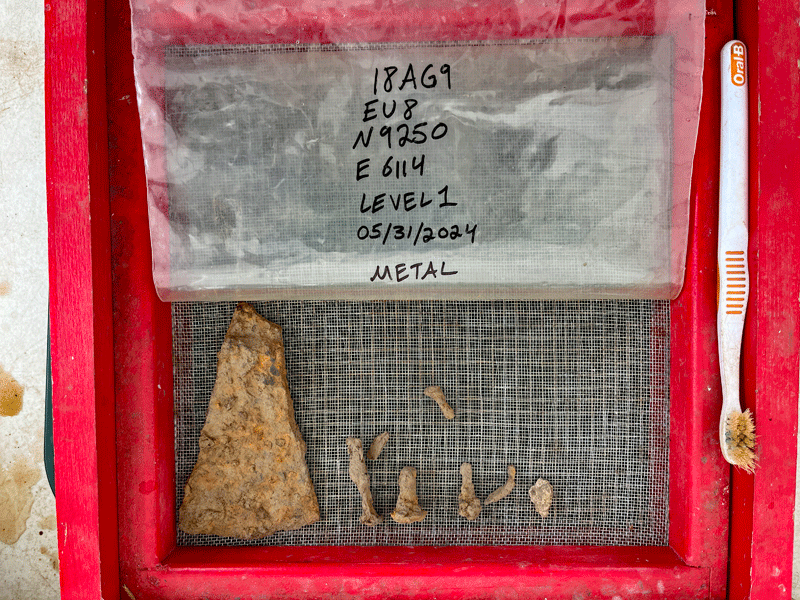 18AG9
EU8
N9250
E 6114
LEVEL 1
05/31/2024
METAL
Oral-B